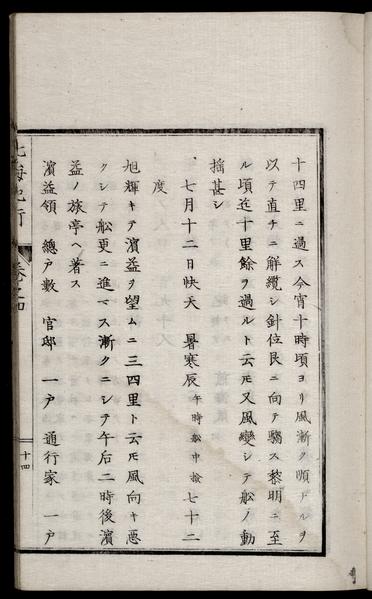 十四里ニ過ス今宵十時頃ヨリ風漸ク順ナルヲ
以テ直チニ解纜シ針位艮ニ向テ駛ス黎明ニ至
ル頃迄十里餘ヲ過ルト云𪜈又風變シテ船ノ動
揺甚シ
七月十二日快天 暑寒辰 午時船中檢 七十二
度
旭輝キテ濱益ヲ望ムニ三四里ト云𪜈風向キ悪
クシテ船更ニ進マス漸クニシテ午后二時後濱
益ノ旅亭ヘ著ス
濱益領 總戸數 官邸 一戸 通行家 一戸
北海紀行 巻之四
十四